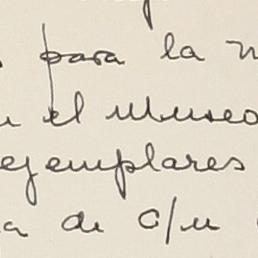 para la
el Museo
ejemplares
de c/u